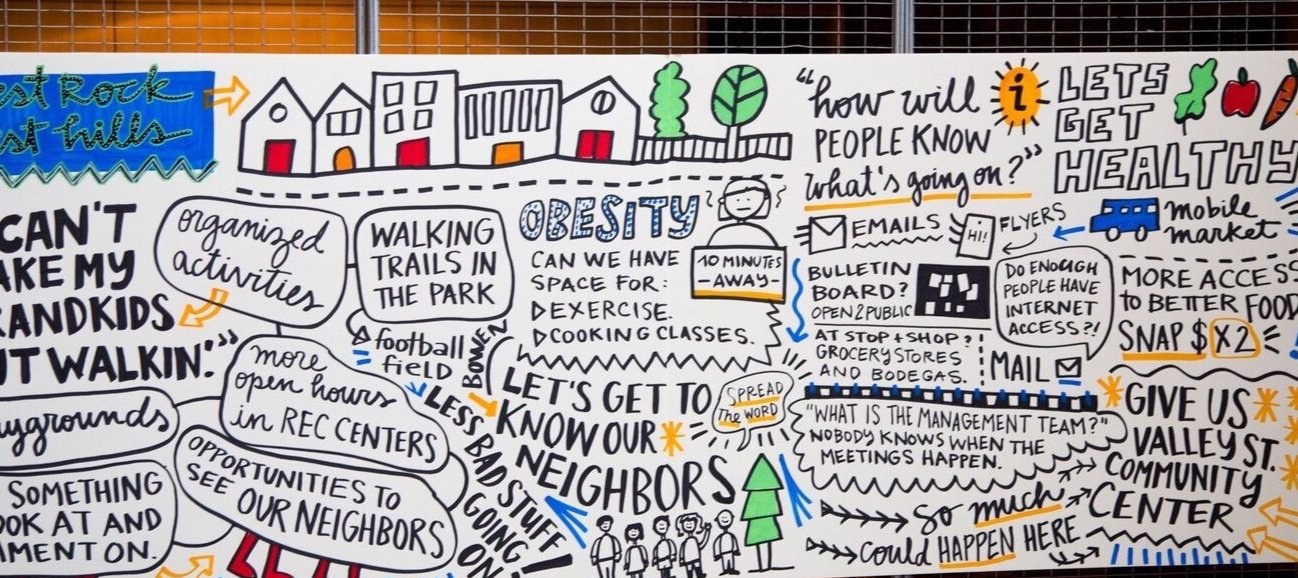 est Rock
est hills
CAN'T
AKE MY
RANDKIDS
UT WALKIN'."
organized
activities
WALKING
TRAILS IN
THE PARK
football
field
BOWEN
more
open hours
in REC CENTERS
ygrounds
OPPORTUNITIES TO
SEE OUR NEIGHBORS
SOMETHING
OOK AT AND
MENT ON.
LESS BAD STUFF
GOING ON!
OBESITY
CAN WE HAVE
SPACE FOR:
EXERCISE.
COOKING CLASSES.
10 MINUTES
-AWAY-
LET'S GET TO
KNOW OUR
NEIGHBORS
SPREAD
THE WORD
"how will
PEOPLE KNOW
what's going on?"
i
EMAILS
HI!
FLYERS
BULLETIN
BOARD?
OPEN 2 PUBLIC
AT STOP + SHOP?
GROCERY STORES
AND BODEGAS.
DO ENOUGH
PEOPLE HAVE
INTERNET
ACCESS?!
MAIL
"WHAT IS THE MANAGEMENT TEAM?"
NOBODY KNOWS WHEN THE
MEETINGS HAPPEN.
so much
could HAPPEN HERE
LETS
GET
HEALTHY
mobile
market
MORE ACCESS
to BETTER FOOD
SNAP $ X2
GIVE US
VALLEY ST.
COMMUNITY
CENTER